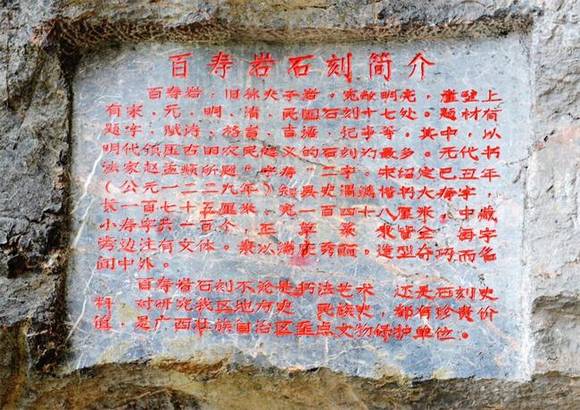 百寿岩石刻简介
百寿岩，旧称夫子岩。宽敞明亮，崖壁上
有宋、元、明、清、民国石刻十七处。题材有
题字、赋诗、格言、吉语、记事等。其中，以
明代镇压古田农民起义的石刻为最多。元代书
法家赵孟頫所题"字寿"二字。宋绍定己丑年
(公元一二二九年)知县史渭满楷书大寿字，
长一百七十五厘米，宽一百四十八厘米，中藏
小寿字共一百个，正 草 篆 隶皆全 每字
旁边注有文体。 造型奇巧而名
闻中外。
百寿岩石刻不论是书法艺术 还是石刻史
料，对研究我区地方史 民族史，都有珍贵价
值，是广西壮族自治区重点文物保护单位。